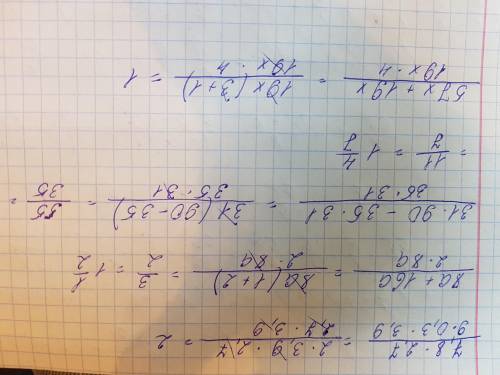 7,8 · 2,7 / 9 · 0,3 · 3,9 = 2 · 3,9 · 2,7 / 2,7 · 3,9 = 2
8a + 16a / 2 · 8a = 8a(1+2) / 2 · 8a = 3/2 = 1 1/2
31 · 90 − 35 · 31 / 35 · 31 = 31(90 − 35) / 35 · 31 = 55/35 =
= 11/7 = 1 4/7
57x + 19x / 19x · 4 = 19x(3+1) / 19x · 4 = 1